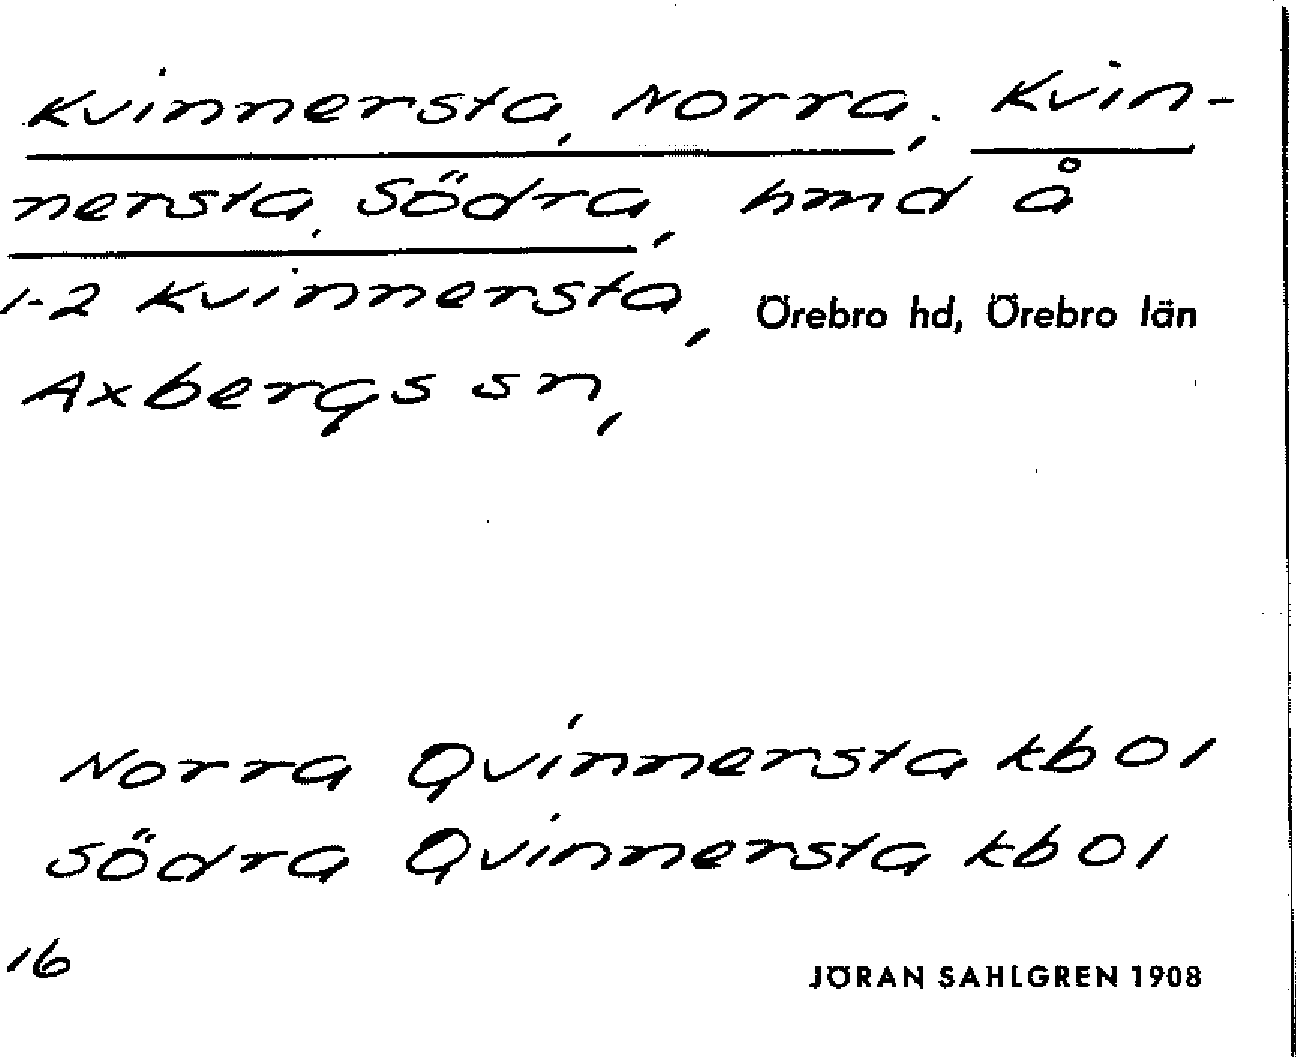 Kvinnersta, Norra, Kvin-
nersta, Södra, hmd å
1-2 Kvinnersta, Örebro hd, Örebro län
Axbergs sn,
Norra Qvinnersta kb 01
Södra Qvinnersta kb 01
16
JÖRAN SAHLGREN 1908